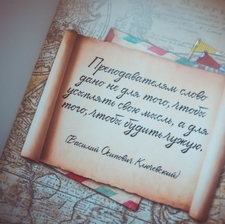 Преподавателям слово
дано не для того, чтобы
усыплять свою мысль, а для
того, чтобы будить чужую.
(Василий Осипович Ключевский)